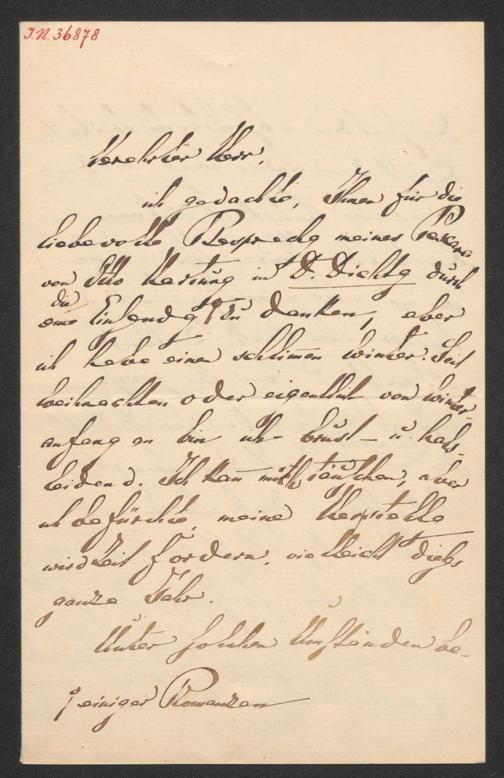 I.N. 36878
Verehrter Herr,
ich gedachte, Ihnen für die
liebevolle Besprechg meines Pescara
von Otto Hartung in d. Dichtg durch
die
eine Einsendg zu danken, aber
ich habe einen schlimen Winter. Seit
Weihnachten oder eigentlich von Winter-
anfang an bin ich brust- u. hals-
leidend. Ich kan mich täuschen, aber
ich befürchte, meine Herstellg
wird Zeit fordern, vielleicht dieses
ganze Jahr.
Unter solchen Umständen be-
einiger Romanzen